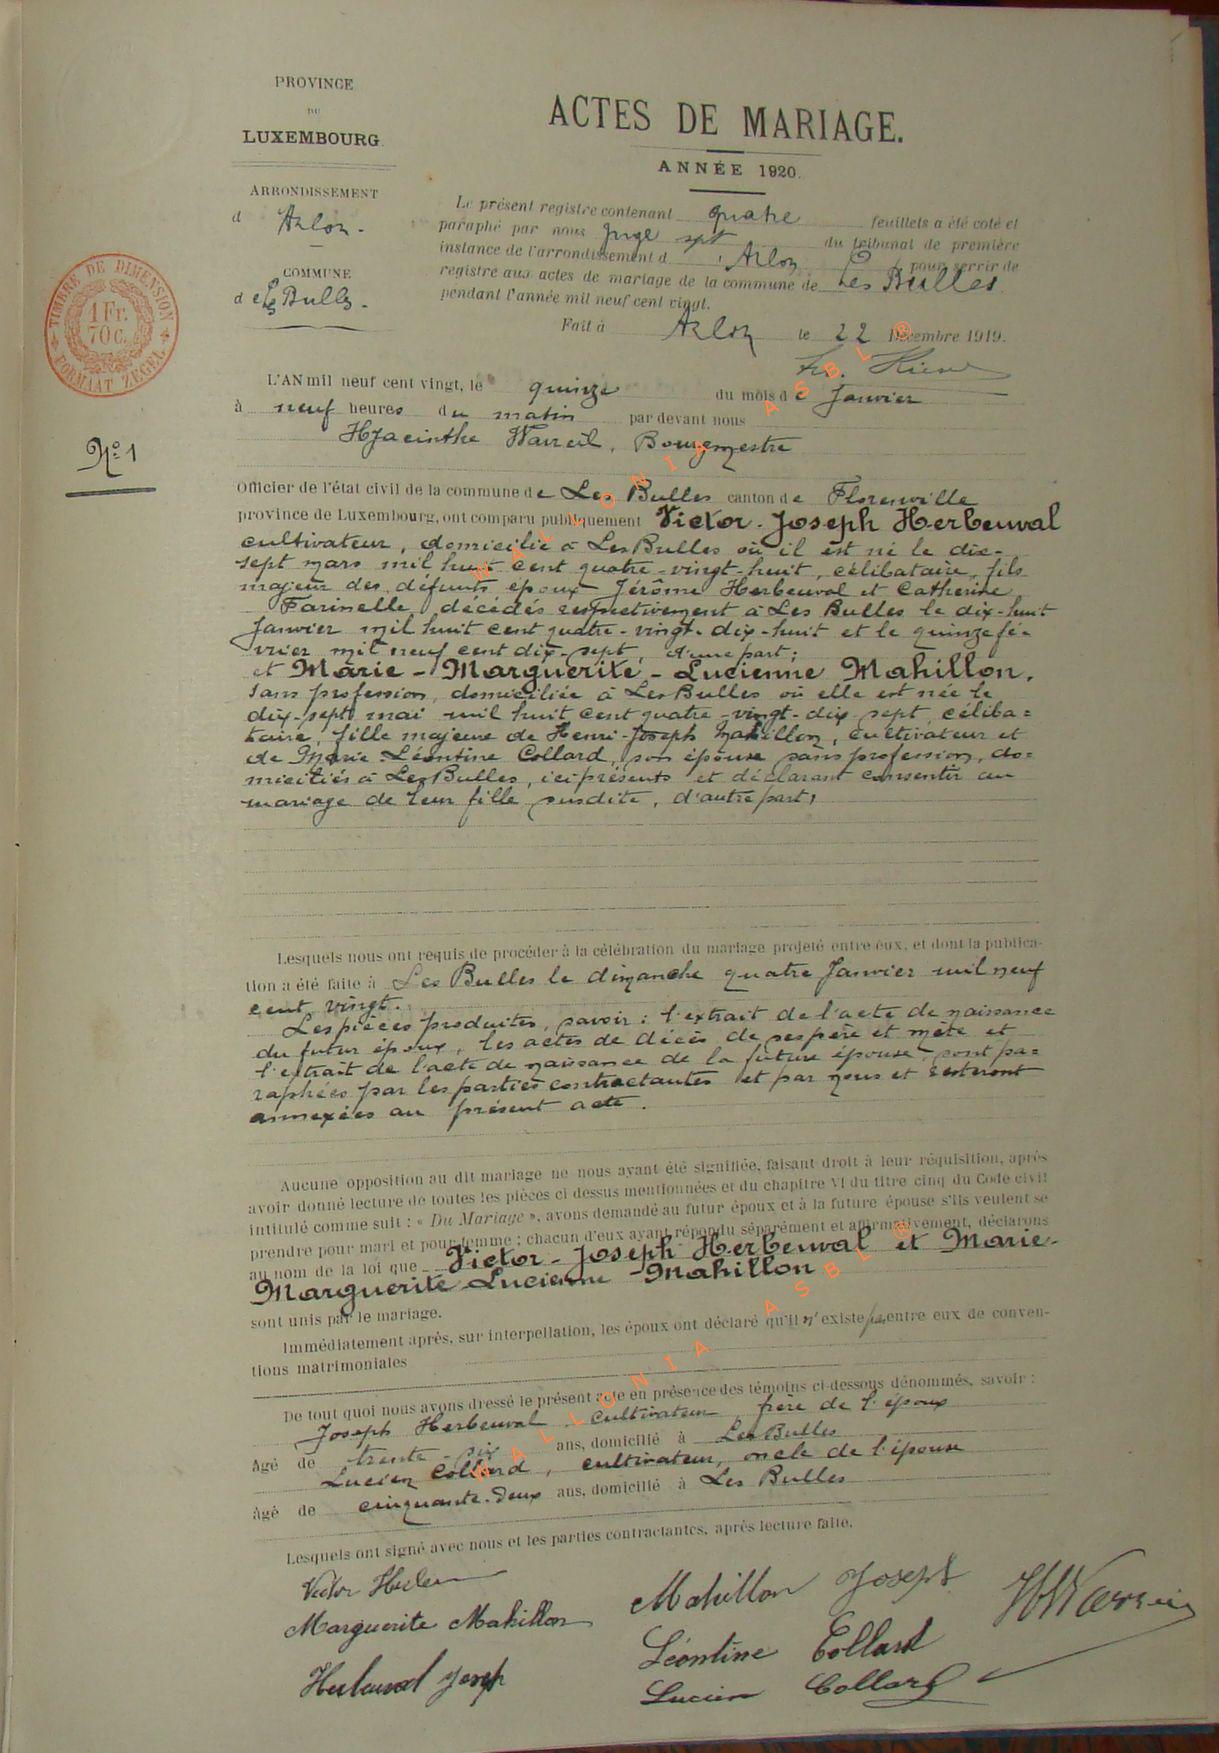 PROVINCE
DU
LUXEMBOURG
ARRONDISSEMENT
d Arlon.
COMMUNE
de Les Bulles.
TIMBRE DE DIMENSION
1 Fr.
70 c.
FORMAAT ZEGEL
ACTES DE MARIAGE.
ANNÉE 1920.
Le présent registre contenant quatre feuillets a été coté et
paraphé par nous Juge du tribunal de première
instance de l'arrondissement d'Arlon pour servir de
registre aux actes de mariage de la commune de Les Bulles
pendant l'année mil neuf cent vingt.
Fait à Arlon le 22 Décembre 1919.
N° 1
L'AN mil neuf cent vingt, le quinze du mois de Janvier
à neuf heures du matin par devant nous
Hyacinthe Bourgmestre
Officier de l'état civil de la commune de Les Bulles canton de Florenville
province de Luxembourg, ont comparu publiquement Victor-Joseph Herbeuval
cultivateur, domicilié à Les Bulles où il est né le dix-
sept mars mil huit cent quatre-vingt-huit, célibataire, fils
majeur des défunts époux Jérôme Herbeuval et Catherine
Farinelle, décédés respectivement à Les Bulles le dix-huit
Janvier mil huit cent quatre-vingt-dix-huit et le quinze fé-
vrier mil neuf cent dix-sept, d'une part;
et Marie-Marguerite-Lucienne Mahillon,
sans profession, domiciliée à Les Bulles où elle est née le
dix-sept mai mil huit cent quatre-vingt-dix-sept, céliba-
taire, fille majeure de Henri-Joseph Mahillon, cultivateur et
de Marie-Léontine Collard, son épouse sans profession, do-
miciliés à Les Bulles, ici présents et déclarant consentir au
mariage de leur fille susdite, d'autre part,
Lesquels nous ont requis de procéder à la célébration du mariage projeté entre eux, et dont la publica-
tion a été faite à Les Bulles le dimanche quatre Janvier mil neuf
cent vingt.
Les pièces produites, savoir: l'extrait de l'acte de naissance
du futur époux, les actes de décès de ses père et mère et
l'extrait de l'acte de naissance de la future épouse, sont pa-
raphées par les parties contractantes et par nous et resteront
annexées au présent acte.
Aucune opposition au dit mariage ne nous ayant été signifiée, faisant droit à leur réquisition, après
avoir donné lecture de toutes les pièces ci dessus mentionnées et du chapitre VI du titre cinq du Code civil
intitulé comme suit : « Du Mariage », avons demandé au futur époux et à la future épouse s'ils veulent se
prendre pour mari et pour femme ; chacun d'eux ayant répondu séparément et affirmativement, déclarons
au nom de la loi que Victor-Joseph Herbeuval et Marie-
Marguerite-Lucienne Mahillon
sont unis par le mariage.
Immédiatement après, sur interpellation, les époux ont déclaré qu'il n'existe pas entre eux de conven-
tions matrimoniales
De tout quoi nous avons dressé le présent acte en présence des témoins ci-dessous dénommés, savoir :
Joseph Herbeuval cultivateur frère de l'époux
âgé de trente-six ans, domicilié à Les Bulles
Lucien Collard, cultivateur, oncle de l'épouse
âgé de cinquante-deux ans, domicilié à Les Bulles
Lesquels ont signé avec nous et les parties contractantes, après lecture faite.
Victor
Marguerite Mahillon
Herbeuval Joseph
Mahillon Joseph
Léontine Collard
Lucien Collard
WALLONIA ASBL ®
WALLONIA ASBL ®